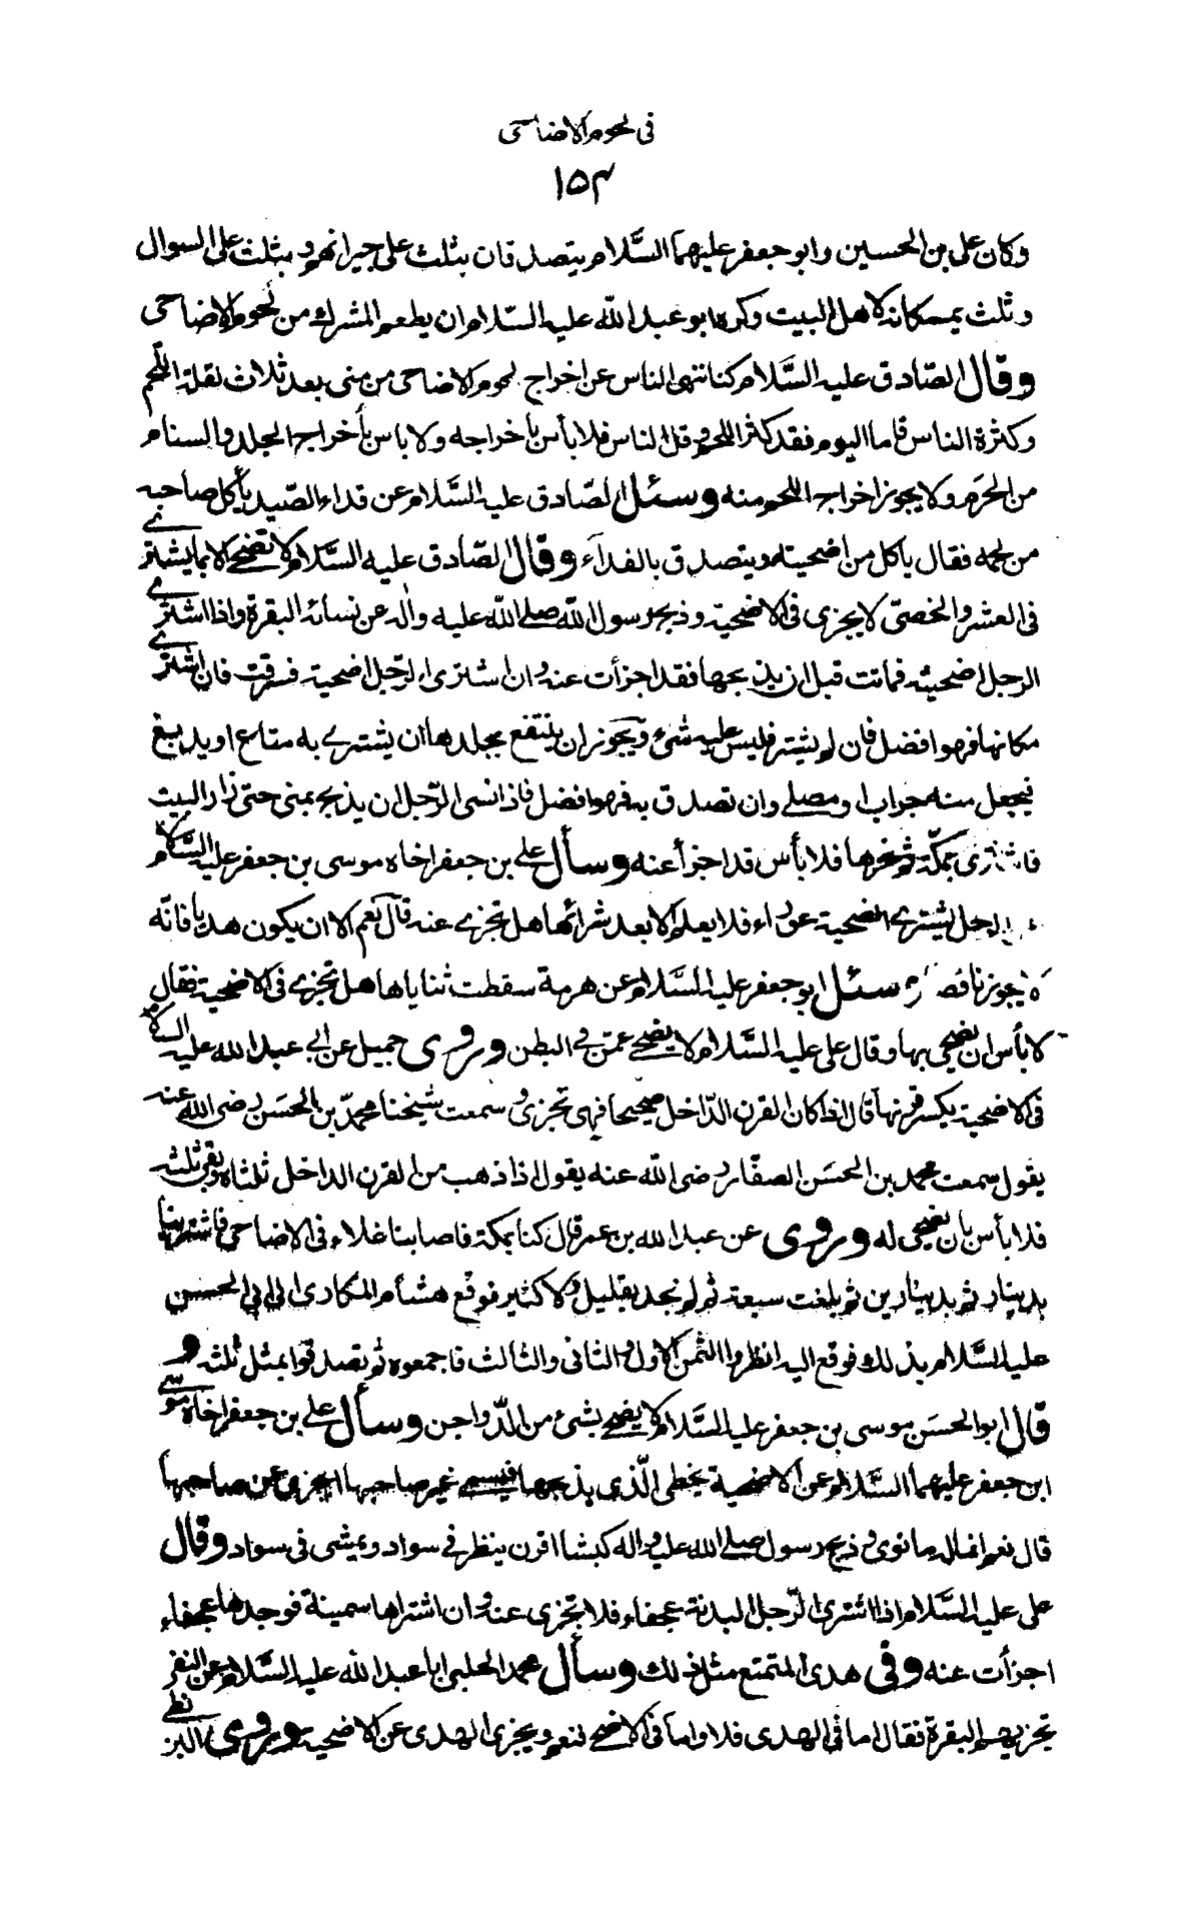 فى لحوم الاضاحى
١٥٣
وكان على بن الحسين وابو جعفر عليهما السَّلام يتصدقان بثلث على جيرانهم وبثلث على السوال
وثلث يمسكانه لاهل البيت وكره ابو عبد الله عليه السّلام ان يطعم المشرك من لحوم الاضاحى
وقال الصّادق عليه السَّلام كنا ننهى الناس عن اخراج لحوم الاضاحى من منى بعد ثلاث لقلة اللّحم
وكثرة الناس فاما اليوم فقد كثر اللحم وقل الناس فلا بأس بأخراجه ولا باس بأخراج الجلد والسنام
من الحرَم ولا يجوز اخراج اللحم منه وسئل الصّادق عليه السَّلام عن فداء الصّيد يأكل صاحبه
من لحمه فقال ياكل من اضحيته ويتصدق بالفدآء وقال الصّادق عليه السَّلام لا تضحے الا بما يشترے
فى العشر والخصىّ لا يجزى فى الاضحية وذبح رسول الله صلے الله عليه واله عن نسائه البقرة واذا اشترے
الرجل اضحيته فماتت قبل ان يذبحها فقد اجزأت عنه وان اشترى الرّجل اضحية فسرقت فان اشترے
مكانها فهو افضل فان لم يشتر فليس عليه شئ ويجوز ان ينتفع بجلدها ان يشترے به متاع او يدبغ
فيجعل منه جراب او مصلے وان تصدق به فهو افضل فاذا نسى الرّجل ان يذبح بمنى حتى زار البيت
فاشترى بمكّة ثم نحرها فلا بأس قد اجزأ عنه وسأل علے بن جعفر اخاه موسى بن جعفر عليه السَّلام
الرجل يشترے الضحية عوراء فلا يعلم الا بعد شرائها هل تجزے عنه قال نعم الا ان يكون هديا فانّه
لا يجوز ناقصا وسئل ابو جعفر عليه السَّلام عن هرمة سقطت ثناياها هل تجزے فى الاضحية فقال
لا بأس ان يضحى بها وقال على عليه السَّلام لا يضحے عمّن فى البطن وروى جميل عن ابى عبد الله عليه السلام
فى الاضحية يكسر قرنها قال اذا كان القرن الدّاخل صحيحا فهى تجزى وسمعت شيخنا محمدّ بن الحسَن رضى الله عنه
يقول سمعت محمد بن الحسَن الصفّار رضى الله عنه يقول اذا ذهب من القرن الداخل ثلثاه وبقى ثلثه
فلا بأس بان يضحى له وروى عن عبد الله بن عمر قال كنا بمكة فاصابنا غلاء فى الاضاحى فاشترينا
بدينار ثم بدينارين ثم بلغت سبعة ثم لم نجد بقليل ولا كثير فوقع هشام المكارى الى ابى الحسن
عليه السَّلام بذلك فوقع اليه انظروا الثمن الاول والثانى والثالث فاجمعوه ثم تصدقوا بمثل ثلثه و
قال ابو الحسَن موسى بن جعفر عليه السَّلام لا يضحے بشئ من الدّواجن وسأل علے بن جعفر اخاه موسے
ابن جعفر عليهما السَّلام عن الاضحية يخطى الّذى يذبحها فيسمے غير صاحبها اتجزى عن صاحبها
قال نعم انما له ما نوى وذبح رسول الله صلے الله عليه واله كبشا اقرن ينظر فى سواد ويمشى فى سواد وقال
على عليه السَّلام اذا اشترى الرّجل البدنة عجفاء فلا تجزى عنه وان اشتراها سمينة فوجدها عجفاء
اجزأت عنه وفى هدى المتمتع مثل ذلك وسأل محمد الحلبى ابا عبد الله عليه السَّلام عن النفر
تجزيهم البقرة فقال اما فى الهدى فلا واما فى الاضحے فنعم ويجزى الهدى عن الاضحية وروى البزنطے